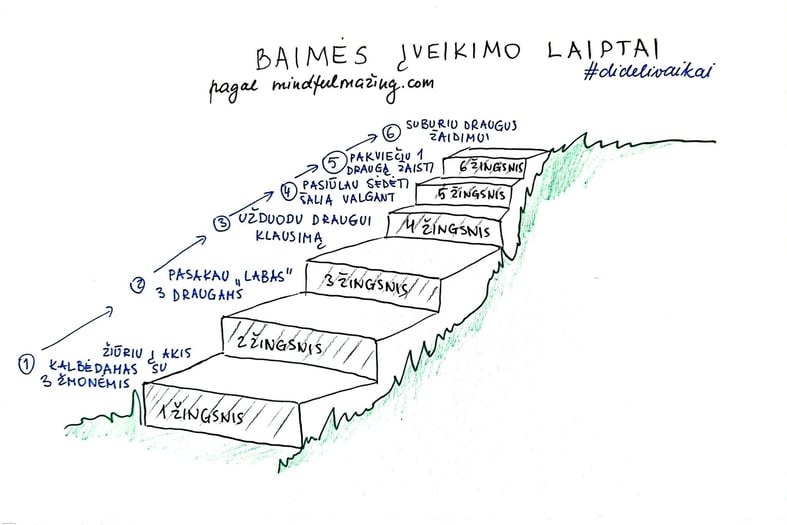 BAIMĖS ĮVEIKIMO LAIPTAI
pagal mindfulmazing.com
#didelivaikai
6 SUBURIU DRAUGUS
ŽAIDIMUI
5 PAKVIEČIU 1
DRAUGĄ ŽAISTI
4 PASIŪLAU SĖDĖTI
ŠALIA VALGANT
3 UŽDUODU DRAUGUI
KLAUSIMĄ
2 PASAKAU „LABAS"
3 DRAUGAMS
1 ŽIŪRIU Į AKIS
KALBĖDAMAS SU
3 ŽMONĖMIS
6 ŽINGSNIS
5 ŽINGSNIS
4 ŽINGSNIS
3 ŽINGSNIS
2 ŽINGSNIS
1 ŽINGSNIS